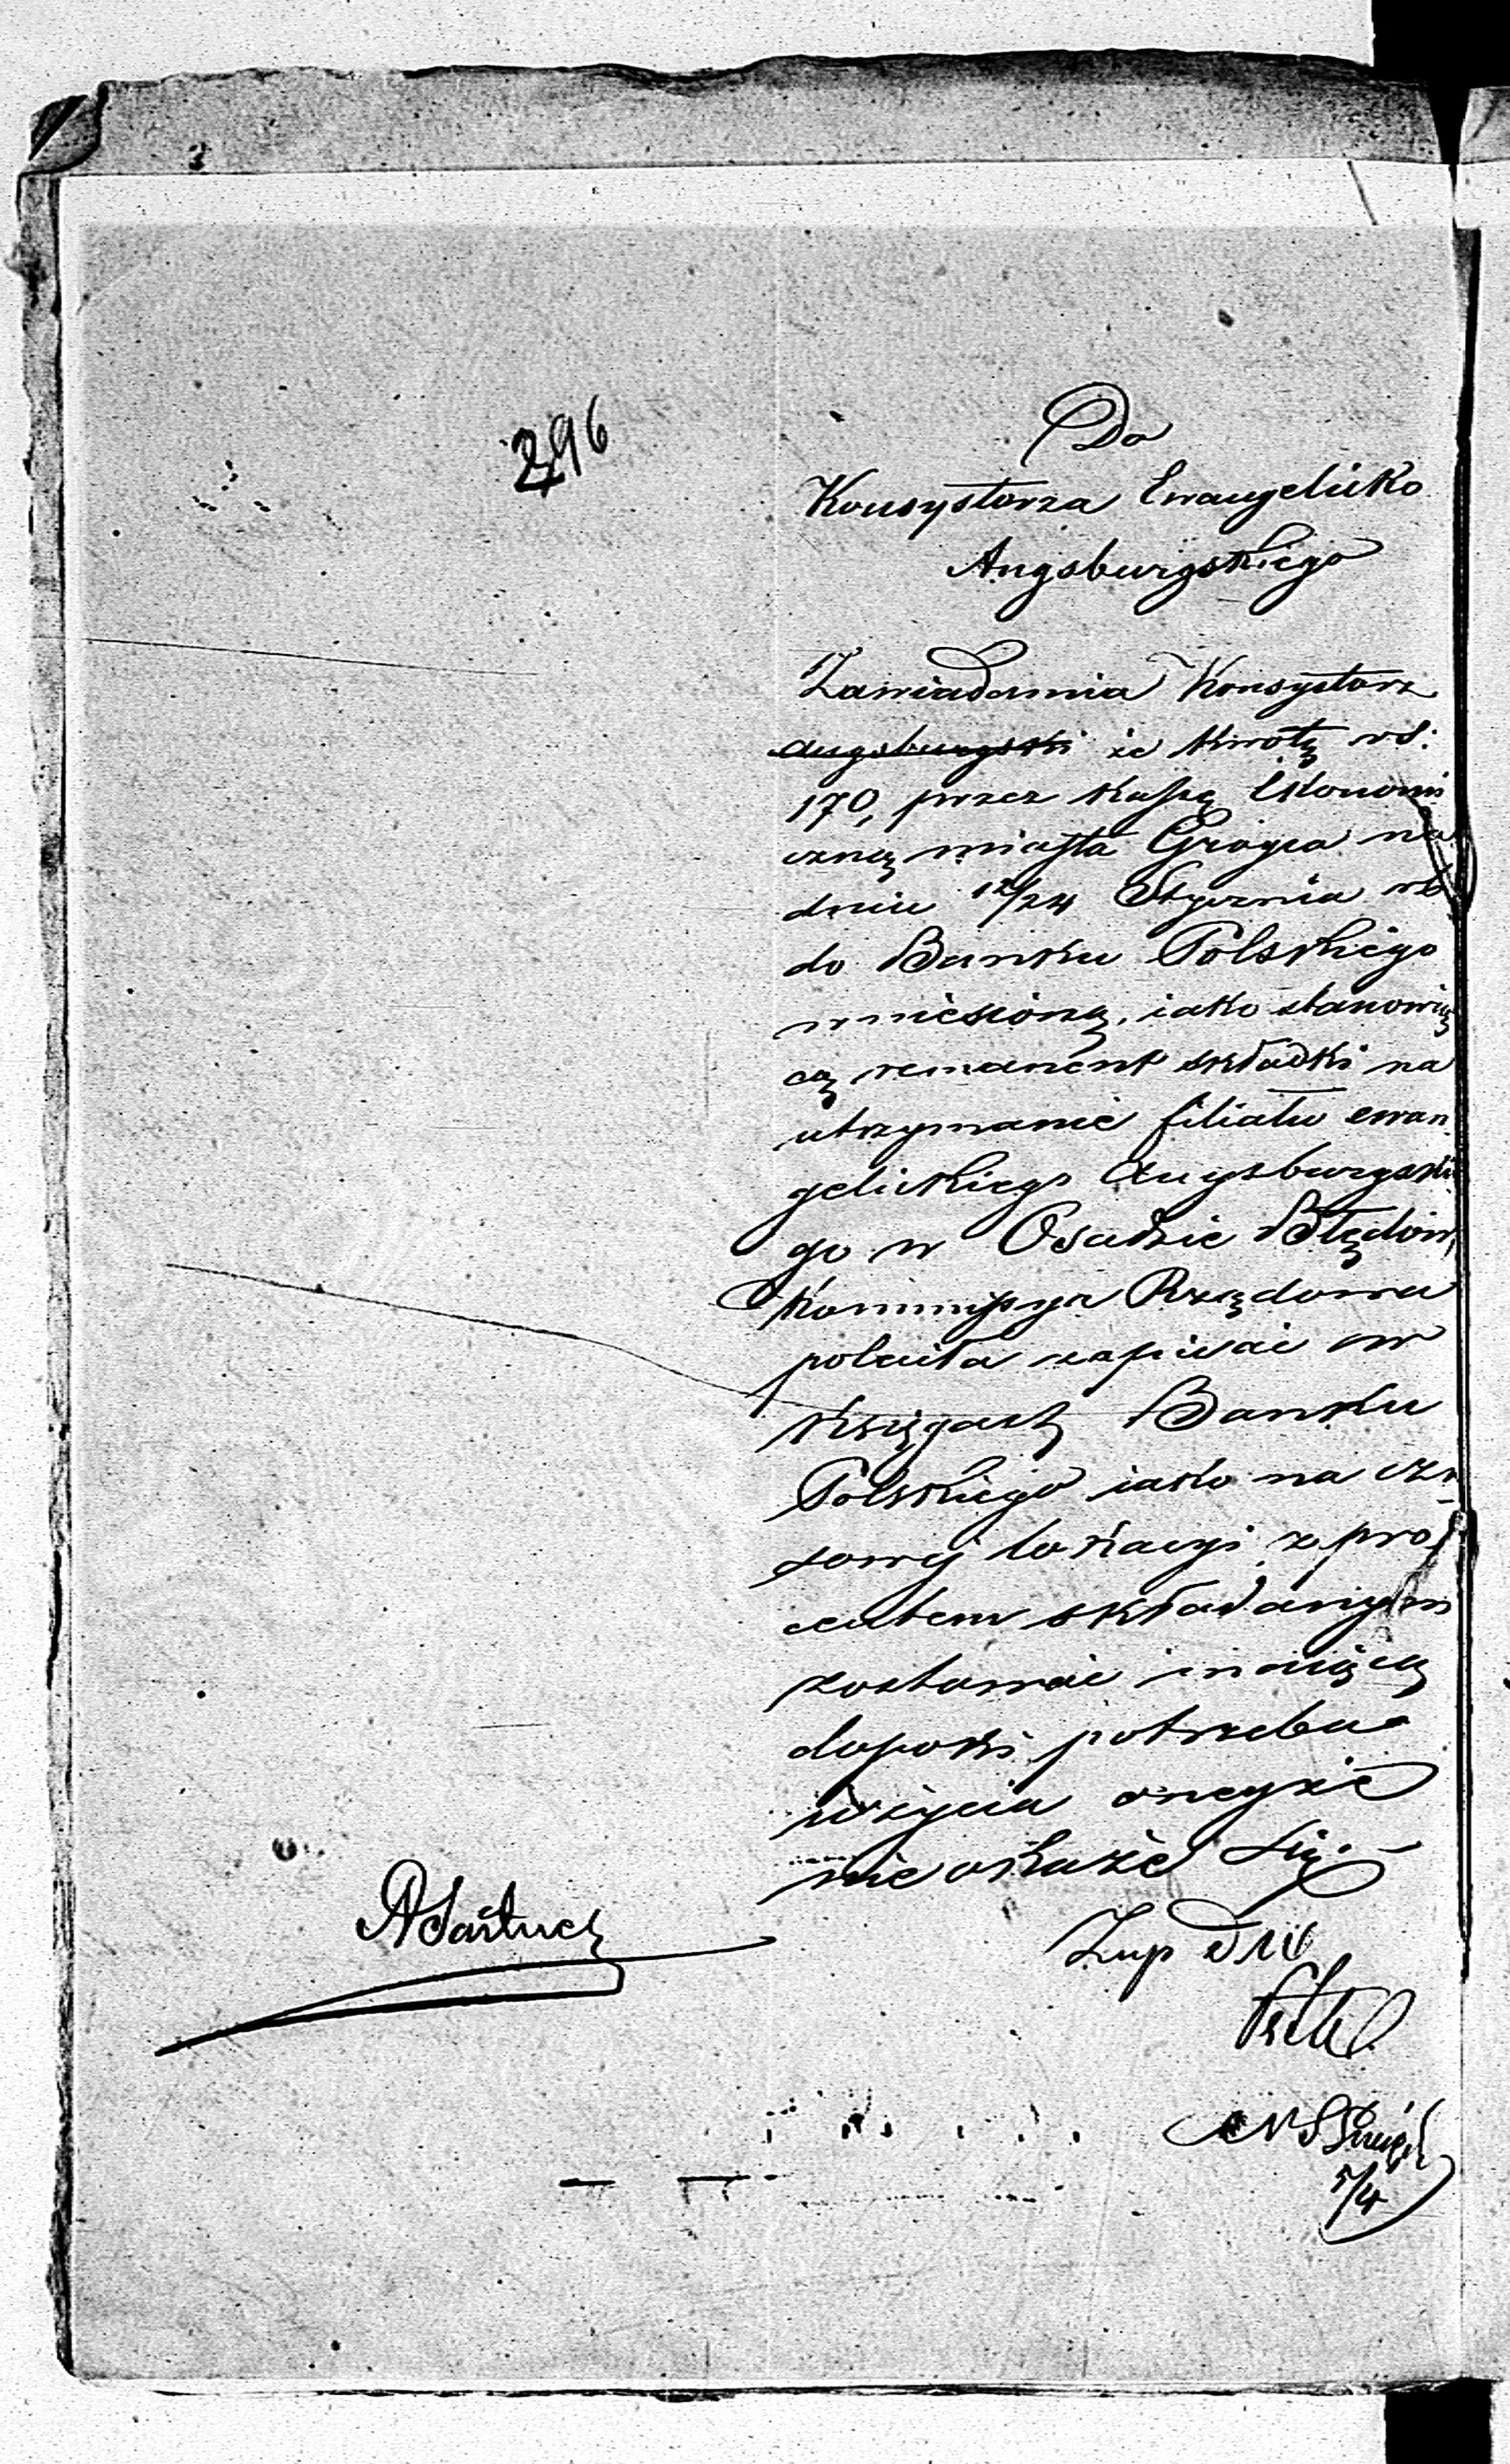 296
Do
Konsystorza Ewangelicko
Augsburgskiego
Zawiadamia Konsystorz
augsburgski że kwotę rs:
170, przez kassę Ekonomi
czną miasta Grójca na
dniu 12/24 Stycznia rb
do Banku Polskiego
wniesioną, iako stanowią
cą remanent składki na
utrzymanie filiału ewan
gelickiego Augsburgski
go w Osadzie Błędow,
Kommissya Rządowa
poleciła zapisać w
księgach Banku
Polskiego iako na cza
sowej lokacyi z pro
centem składanym
zostawać maiącą
dopoki potrzeba
użycia oneyże
nie okaże się.
Zup
5/4